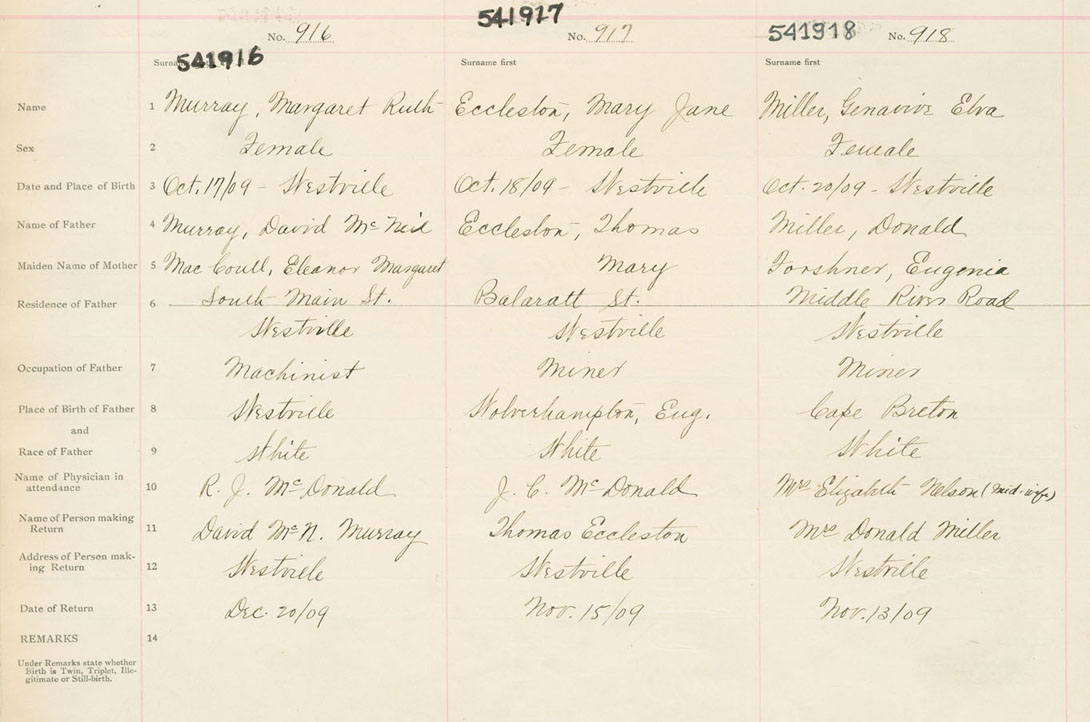 No. 916 541917 No. 917 541918 No. 918
541916 Surname first Surname first
Name 1 Murray, Margaret Ruth Eccleston, Mary Jane Miller, Genavive Elva
Sex 2 Female Female Female
Date and Place of Birth 3 Oct. 17/09 - Westville Oct. 18/09 - Westville Oct. 20/09 - Westville
Name of Father 4 Murray, David McNeil Eccleston, Thomas Miller, Donald
Maiden Name of Mother 5 Eleanor Margaret Mary Forshner, Eugenia
Residence of Father 6 South Main St. Balaratt St. Middle River Road
Westville Westville Westville
Occupation of Father 7 Machinist Miner Miner
Place of Birth of Father 8 Westville Wolverhampton, Eng. Cape Breton
and
Race of Father 9 White White White
Name of Physician in
attendance 10 R. J. McDonald J. C. McDonald Mrs Elizabeth Nelson (mid-wife)
Name of Person making
Return 11 David McN. Murray Thomas Eccleston Mrs Donald Miller
Address of Person mak-
ing Return 12 Westville Westville Westville
Date of Return 13 Dec. 20/09 Nov. 15/09 Nov. 13/09
REMARKS 14
Under Remarks state whether
Birth is Twin, Triplet, Ille-
gitimate or Still-birth.